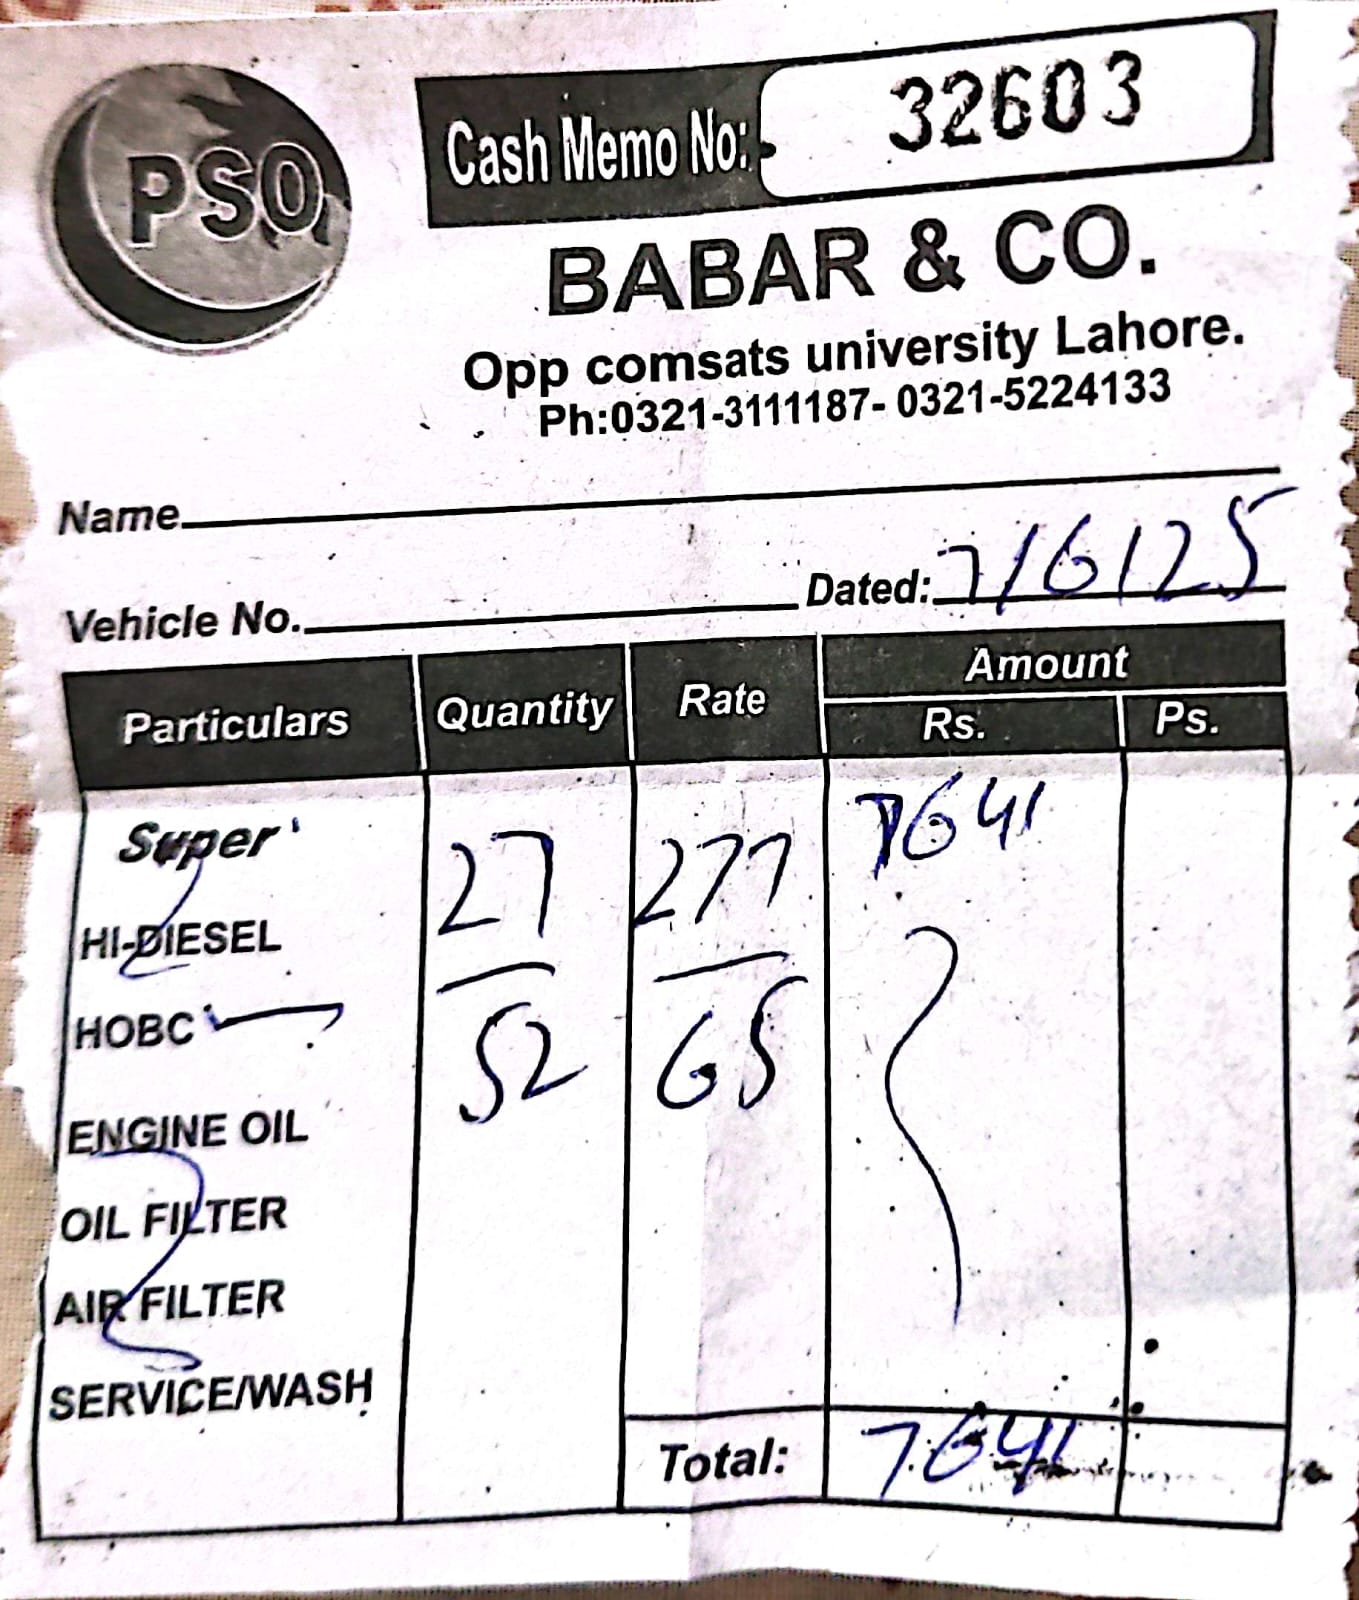 PSO
Cash Memo No: 32603
BABAR & CO.
Opp comsats university Lahore.
Ph:0321-3111187- 0321-5224133
Name
Vehicle No. Dated: 7/6/25
Particulars Quantity Rate Amount
Rs. Ps.
Super 27 277 7641
HI-DIESEL
HOBC 52 65
ENGINE OIL
OIL FILTER
AIR FILTER
SERVICE/WASH
Total: 7641